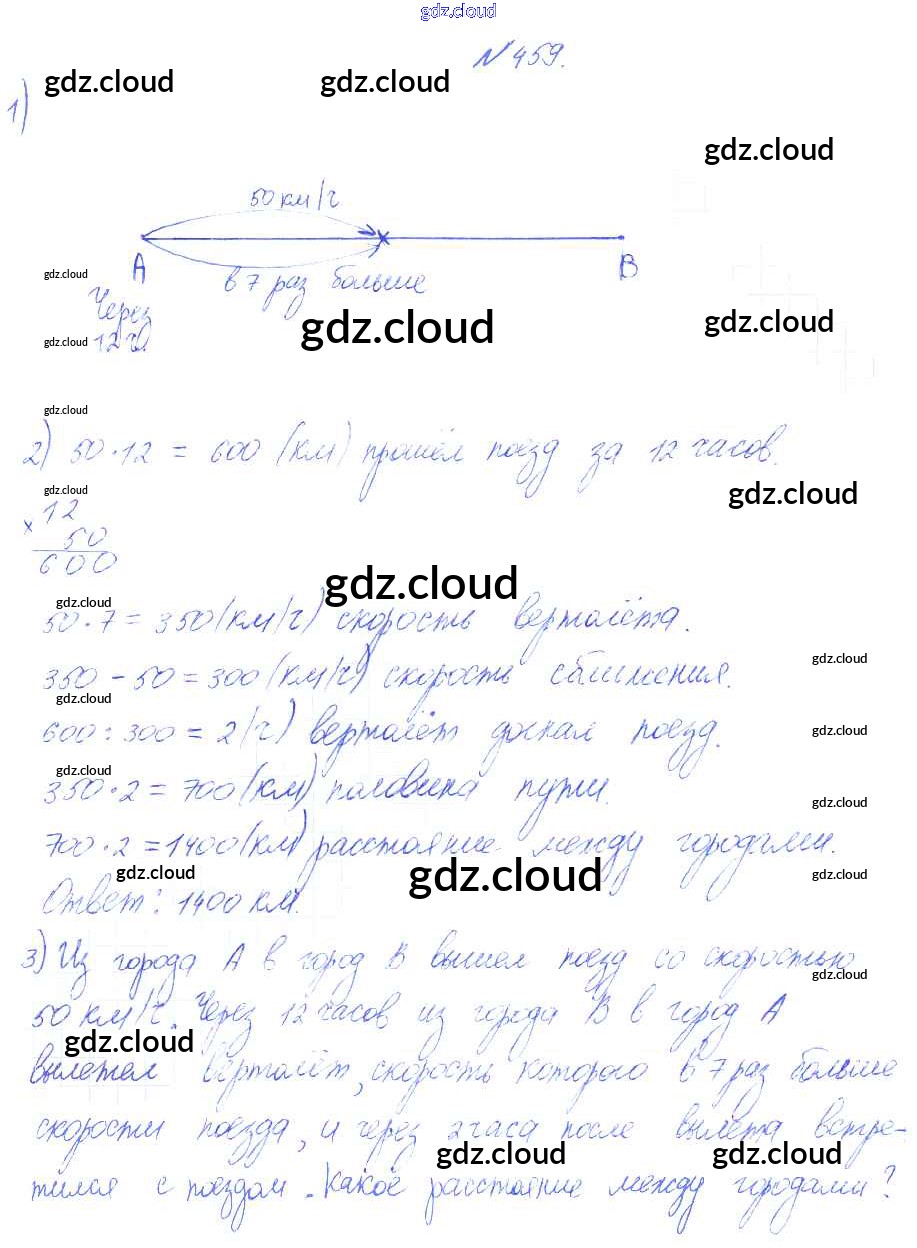 gdz.cloud
№ 459.
gdz.cloud gdz.cloud
1)
gdz.cloud
50 км/ч
А В
gdz.cloud
в 7 раз больше
Через
gdz.cloud gdz.cloud
gdz.cloud 12 ч.
gdz.cloud
2) 50·12 = 600 (км) прошёл поезд за 12 часов.
gdz.cloud
gdz.cloud
× 12
50
600
gdz.cloud
gdz.cloud
50·7 = 350 (км/ч) скорость вертолёта.
gdz.cloud
350 – 50 = 300 (км/ч) скорость сближения.
gdz.cloud
600 : 300 = 2 (ч) вертолёт догнал поезд.
gdz.cloud
gdz.cloud
350·2 = 700 (км) половина пути.
gdz.cloud
700·2 = 1400 (км) расстояние между городами.
gdz.cloud gdz.cloud gdz.cloud
Ответ: 1400 км.
3) Из города А в город В вышел поезд со скоростью
gdz.cloud
50 км/ч. Через 12 часов из города В в город А
gdz.cloud
вылетел вертолёт, скорость которого в 7 раз больше
скорости поезда, и через 2 часа после вылета встре-
gdz.cloud gdz.cloud
тился с поездом. Какое расстояние между городами?